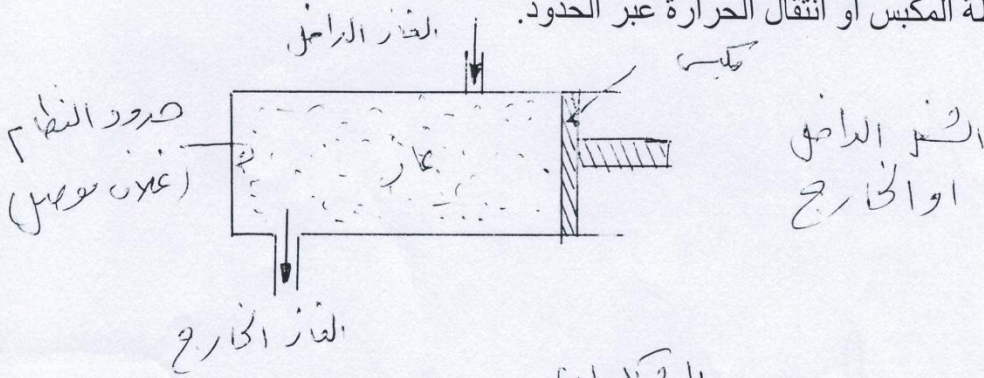 لة المكبس أو انتقال الحرارة عبر الحدود.
الغاز الداخل
مكبس
حدود النظام
(غلاف موصل)
غاز
الشغل الداخل
او الخارج
الغاز الخارج